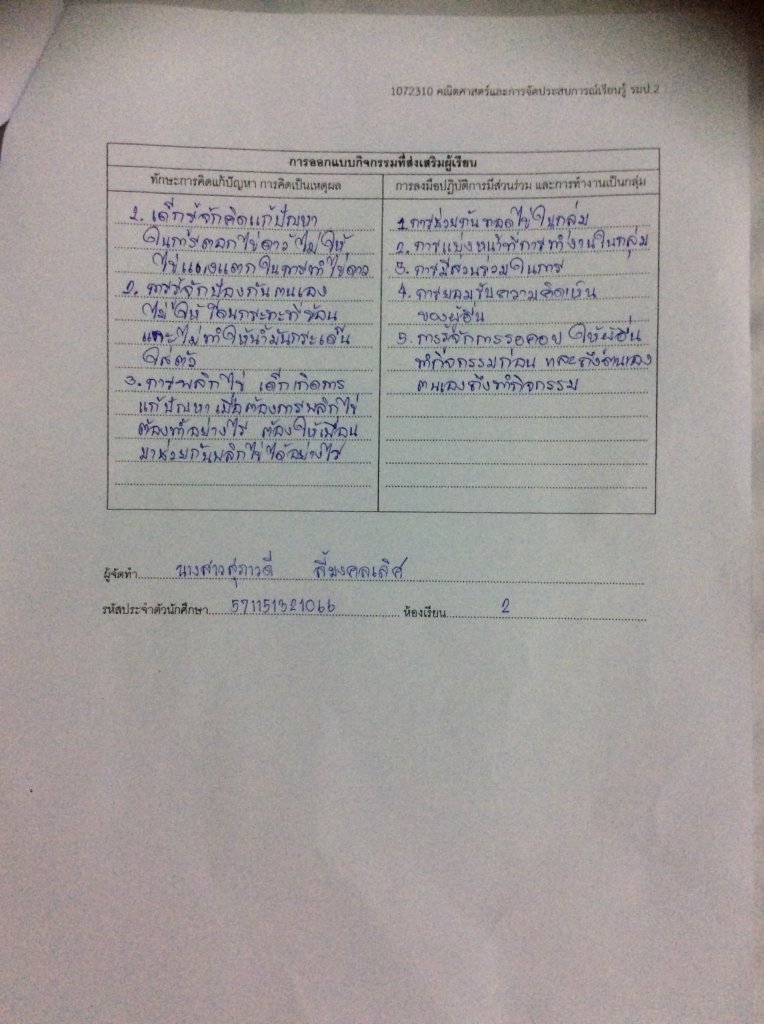 1072310 คณิตศาสตร์และการจัดประสบการณ์เรียนรู้ รมป.2
การออกแบบกิจกรรมที่ส่งเสริมผู้เรียน
ทักษะการคิดแก้ปัญหา การคิดเป็นเหตุผล
1. เด็กรู้จักคิดแก้ปัญหา
ในการตอกไข่ดาว ไม่ให้
ไข่แดงแตกในการทำไข่ดาว
2. การรู้จักป้องกันตนเอง
ไม่ให้โดนกระทะที่ร้อน
และไม่ทำให้น้ำมันกระเด็น
ใส่ตัว
3. การพลิกไข่ เด็กเกิดการ
แก้ปัญหาเมื่อต้องการพลิกไข่
ต้องทำอย่างไร ต้องให้เพื่อน
มาช่วยกันพลิกไข่ได้อย่างไร
การลงมือปฏิบัติการมีส่วนร่วม และการทำงานเป็นกลุ่ม
1. การช่วยกันทอดไข่ในกลุ่ม
2. การแบ่งหน้าที่การทำงานในกลุ่ม
3. การมีส่วนร่วมในการ
4. การยอมรับความคิดเห็น
ของผู้อื่น
5. การรู้จักการรอคอย ให้ผู้อื่น
ทำกิจกรรมก่อน และถึงตนเอง
ตนเองถึงทำกิจกรรม
ผู้จัดทำ นางสาวสุภาวดี ลี้มงคลเลิศ
รหัสประจำตัวนักศึกษา 571151321066 ห้องเรียน 2